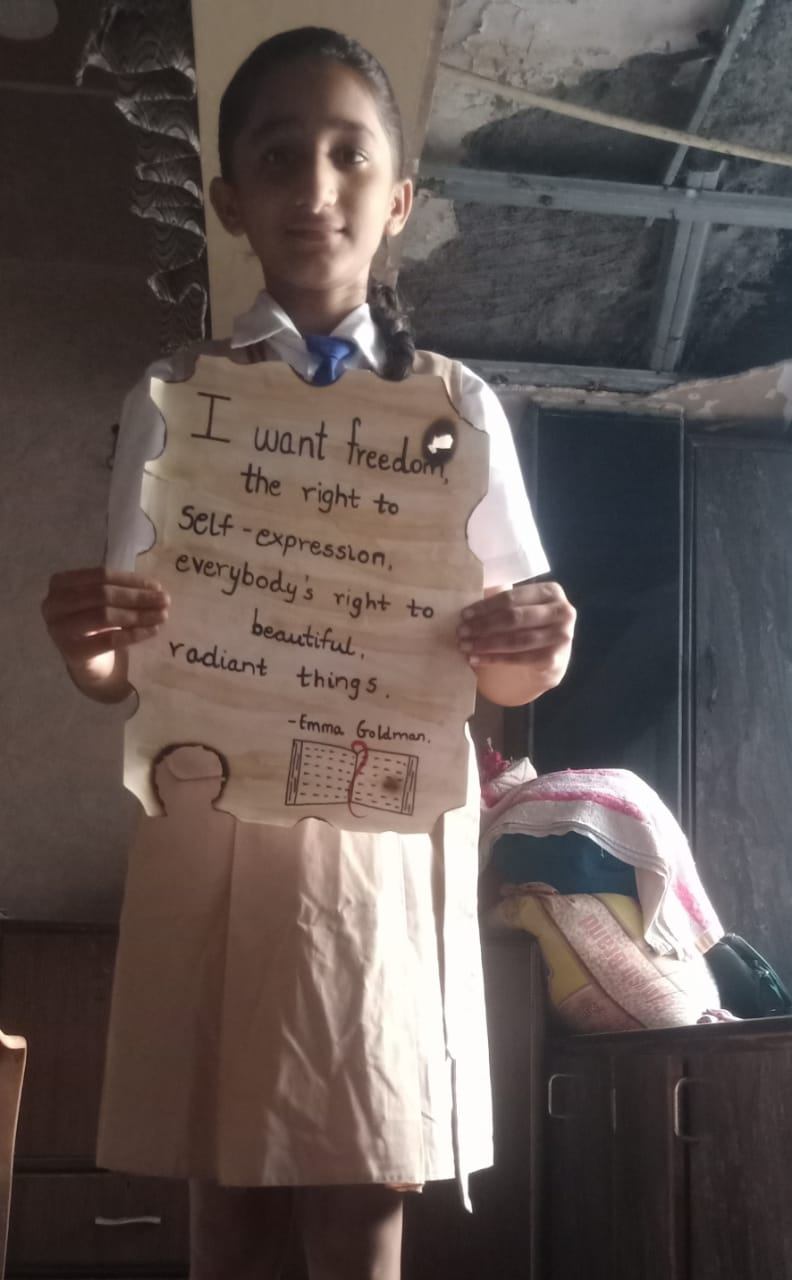 I want freedom,
the right to
self-expression,
everybody's right to
beautiful,
radiant things.
-Emma Goldman.